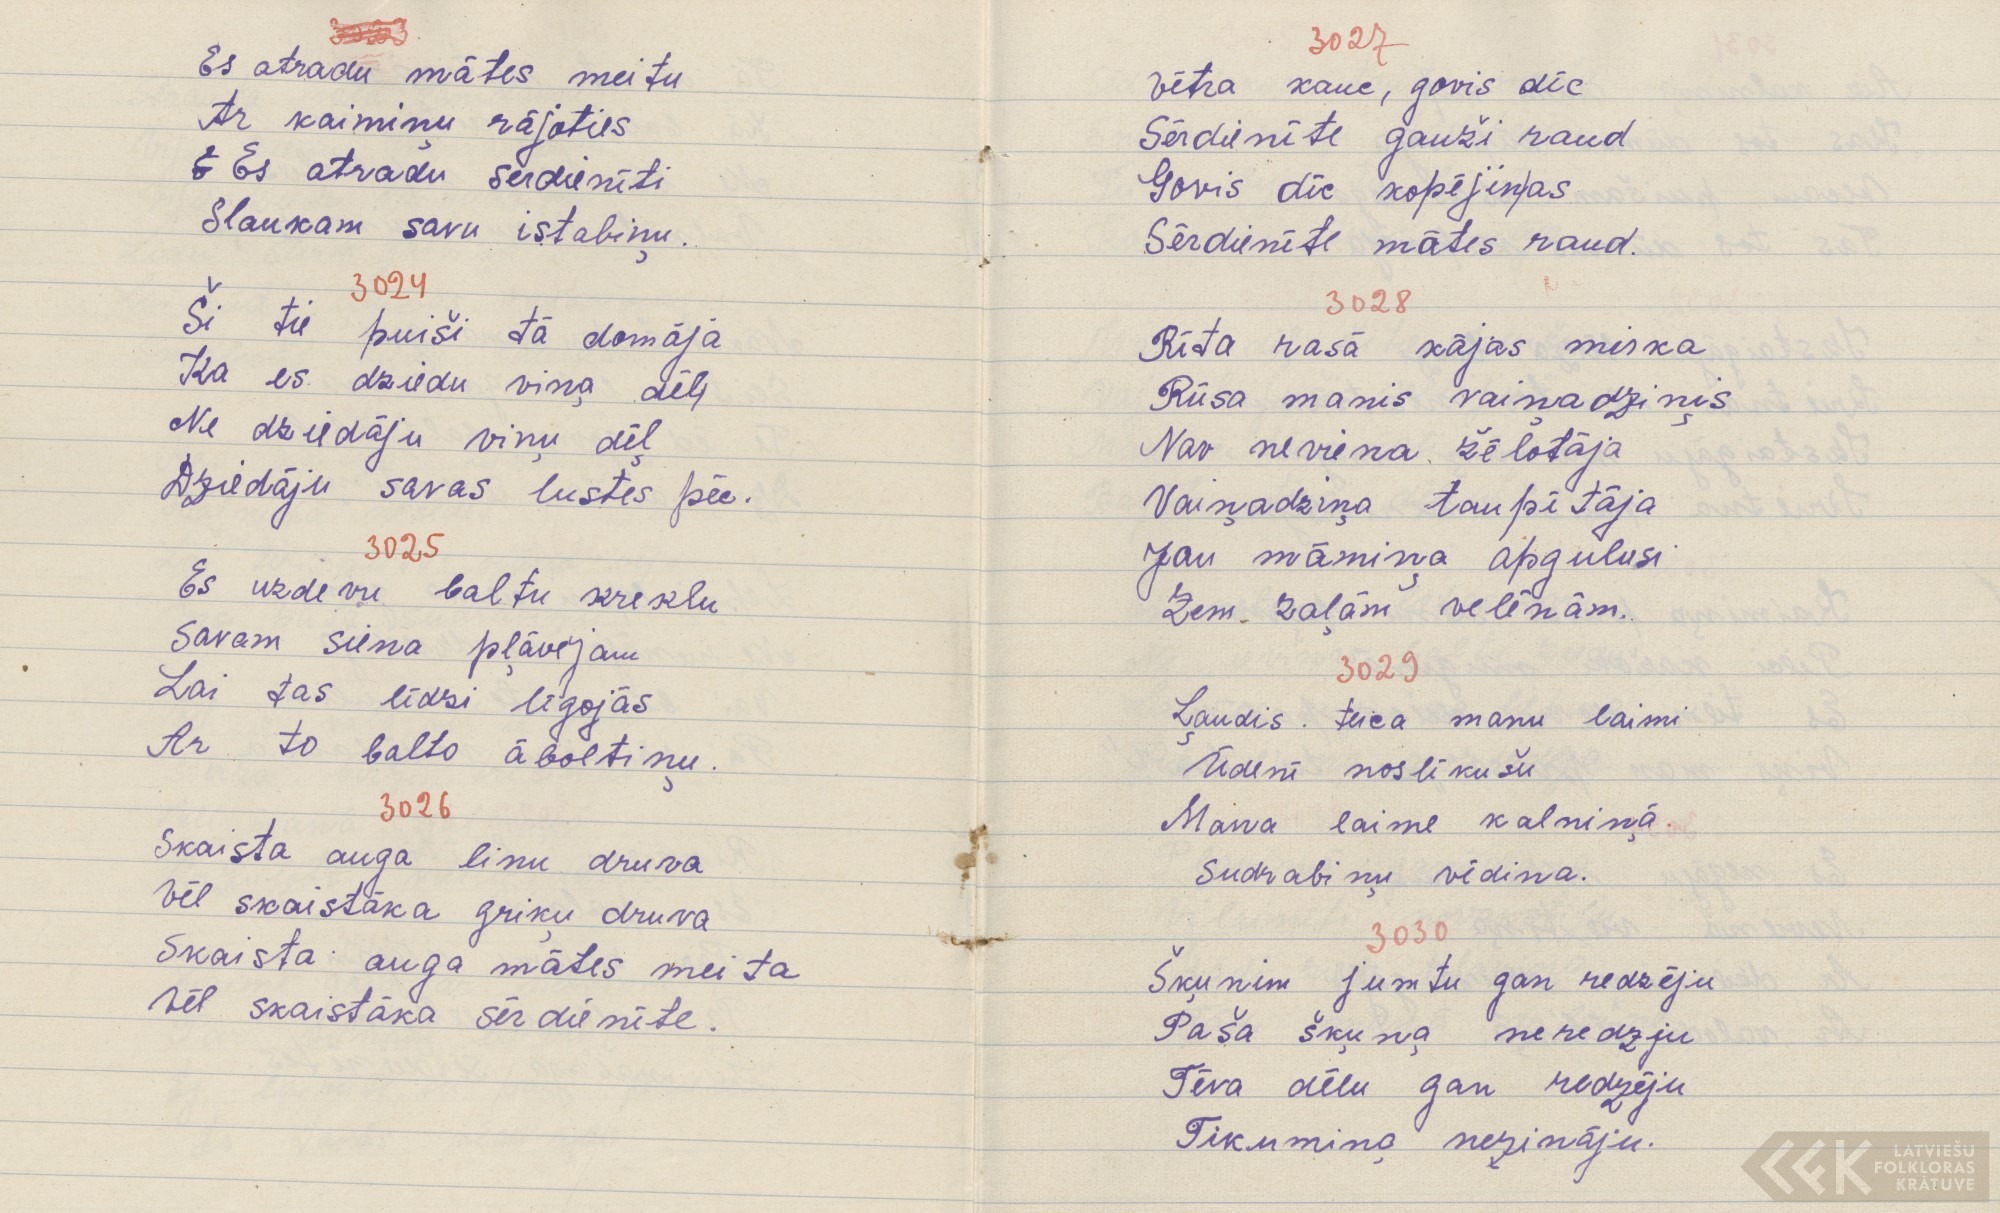 Es atradu mātes meitu
Ar kaimiņu rājoties
Es atradu sērdienīti
Slaukam savu istabiņu.
3024
Ši tie puiši tā domāja
Ka es dziedu viņa dēļ
Ne dziedāju viņu dēļ
Dziedāju savas lustes pēc.
3025
Es uzdevu baltu kreklu
Savam siena pļāvējam
Lai tas līdzi līgojās
Ar to balto āboltiņu.
3026
Skaista auga linu druva
Vēl skaistāka griķu druva
Skaista auga mātes meita
Vēl skaistāka sērdienīte.
3027
Vētra kauc, govis dīc
Sērdienīte gauži raud
Govis dīc kopējiņas
Sērdienīte mātes raud.
3028
Rīta rasā kājas mirka
Rūsa manis vaiņadziņis
Nav neviena žēlotāja
Vaiņadziņa taupītāja
Jau māmiņa apgulusi
Zem zaļām velēnām.
3029
Ļaudis teica manu laimi
Ūdenī noslīkušu
Mana laime kalniņā
Sudrabiņu vēdina.
3030
Šķunim jumtu gan redzēju
Paša šķuņa neredzju
Tēva dēlu gan redzēju
Tikumiņa nezināju.
LATVIEŠU
FOLKLORAS
KRĀTUVE